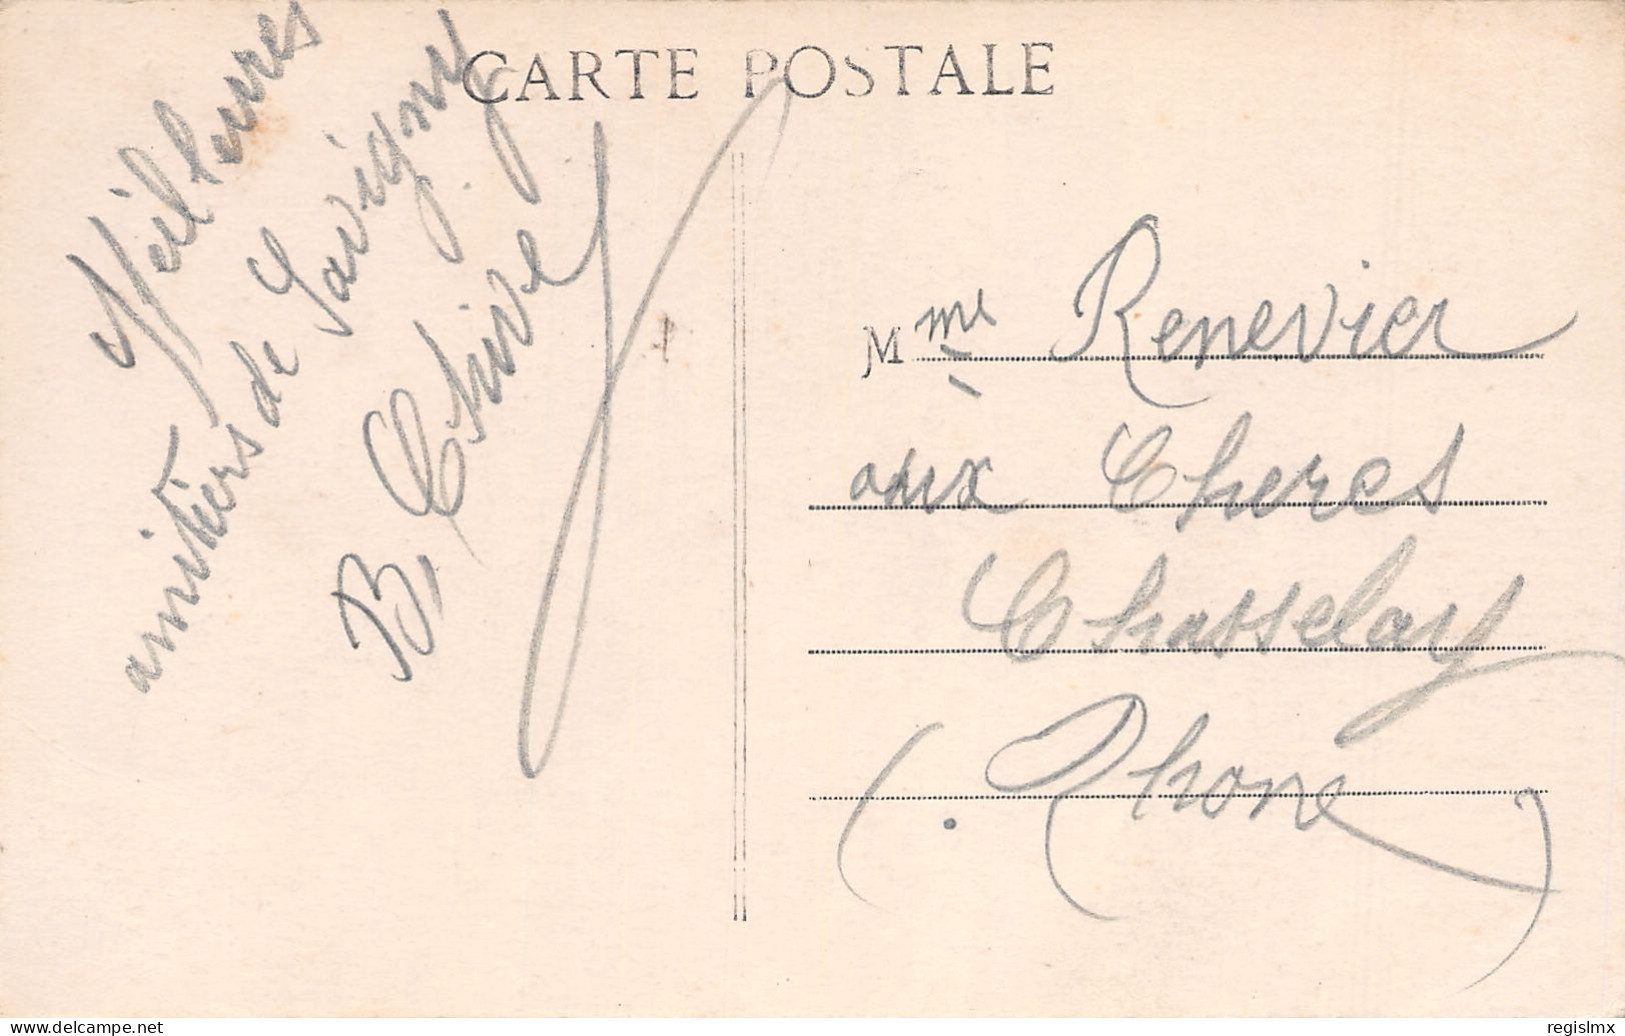 CARTE POSTALE
Meilleures
amitiers de Savigny
B. Chivel
Mme Renevier
aux Cheres
Chasselay
(Rhone)
delcampe.net
regislmx